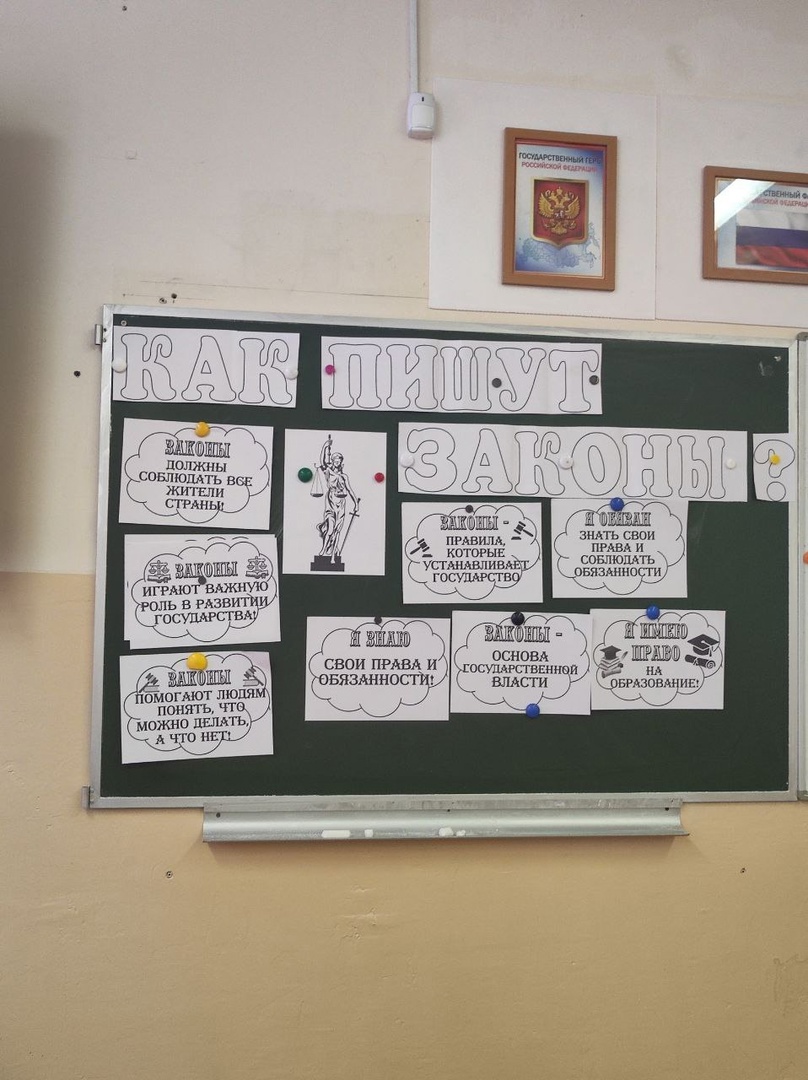 ГОСУДАРСТВЕННЫЙ ГЕРБ
РОССИЙСКОЙ ФЕДЕРАЦИИ
КАК ПИШУТ
ЗАКОНЫ?
ЗАКОНЫ
ДОЛЖНЫ
СОБЛЮДАТЬ ВСЕ
ЖИТЕЛИ
СТРАНЫ!
ЗАКОНЫ
ИГРАЮТ ВАЖНУЮ
РОЛЬ В РАЗВИТИИ
ГОСУДАРСТВА!
ЗАКОНЫ
ПОМОГАЮТ ЛЮДЯМ
ПОНЯТЬ, ЧТО
МОЖНО ДЕЛАТЬ,
А ЧТО НЕТ!
ЗАКОНЫ -
ПРАВИЛА,
КОТОРЫЕ
УСТАНАВЛИВАЕТ
ГОСУДАРСТВО
Я ОБЯЗАН
ЗНАТЬ СВОИ
ПРАВА И
СОБЛЮДАТЬ
ОБЯЗАННОСТИ
Я ЗНАЮ
СВОИ ПРАВА И
ОБЯЗАННОСТИ!
ЗАКОНЫ -
ОСНОВА
ГОСУДАРСТВЕННОЙ
ВЛАСТИ
Я ИМЕЮ
ПРАВО
НА
ОБРАЗОВАНИЕ!